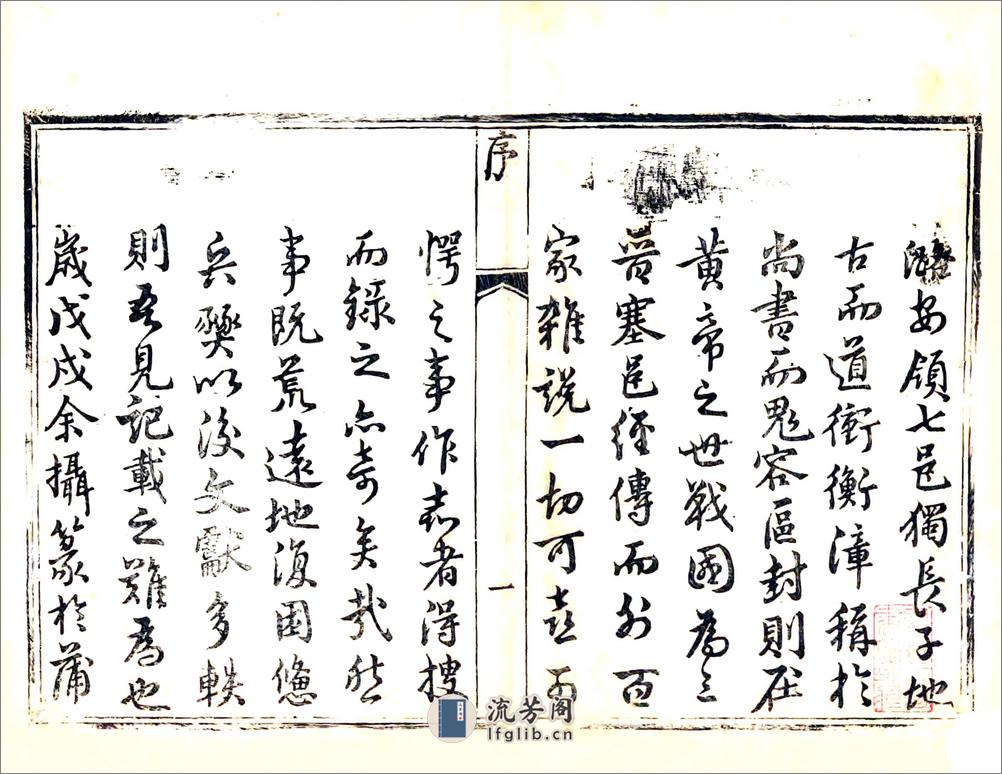 潞安領七邑獨長子地
古而道衝衡漳稱於
尚書而鬼容區封則在
黃帝之世戰國為三
晉塞邑經傳而外百
家雜說一切可喜可
序
一
愕之事作志者得搜
而錄之亦奇矣哉然
事既荒遠地復困
兵燹以後文獻多軼
則吾見記載之難為也
歲戊戌余攝篆於蒲
流芳阁
lfglib.cn